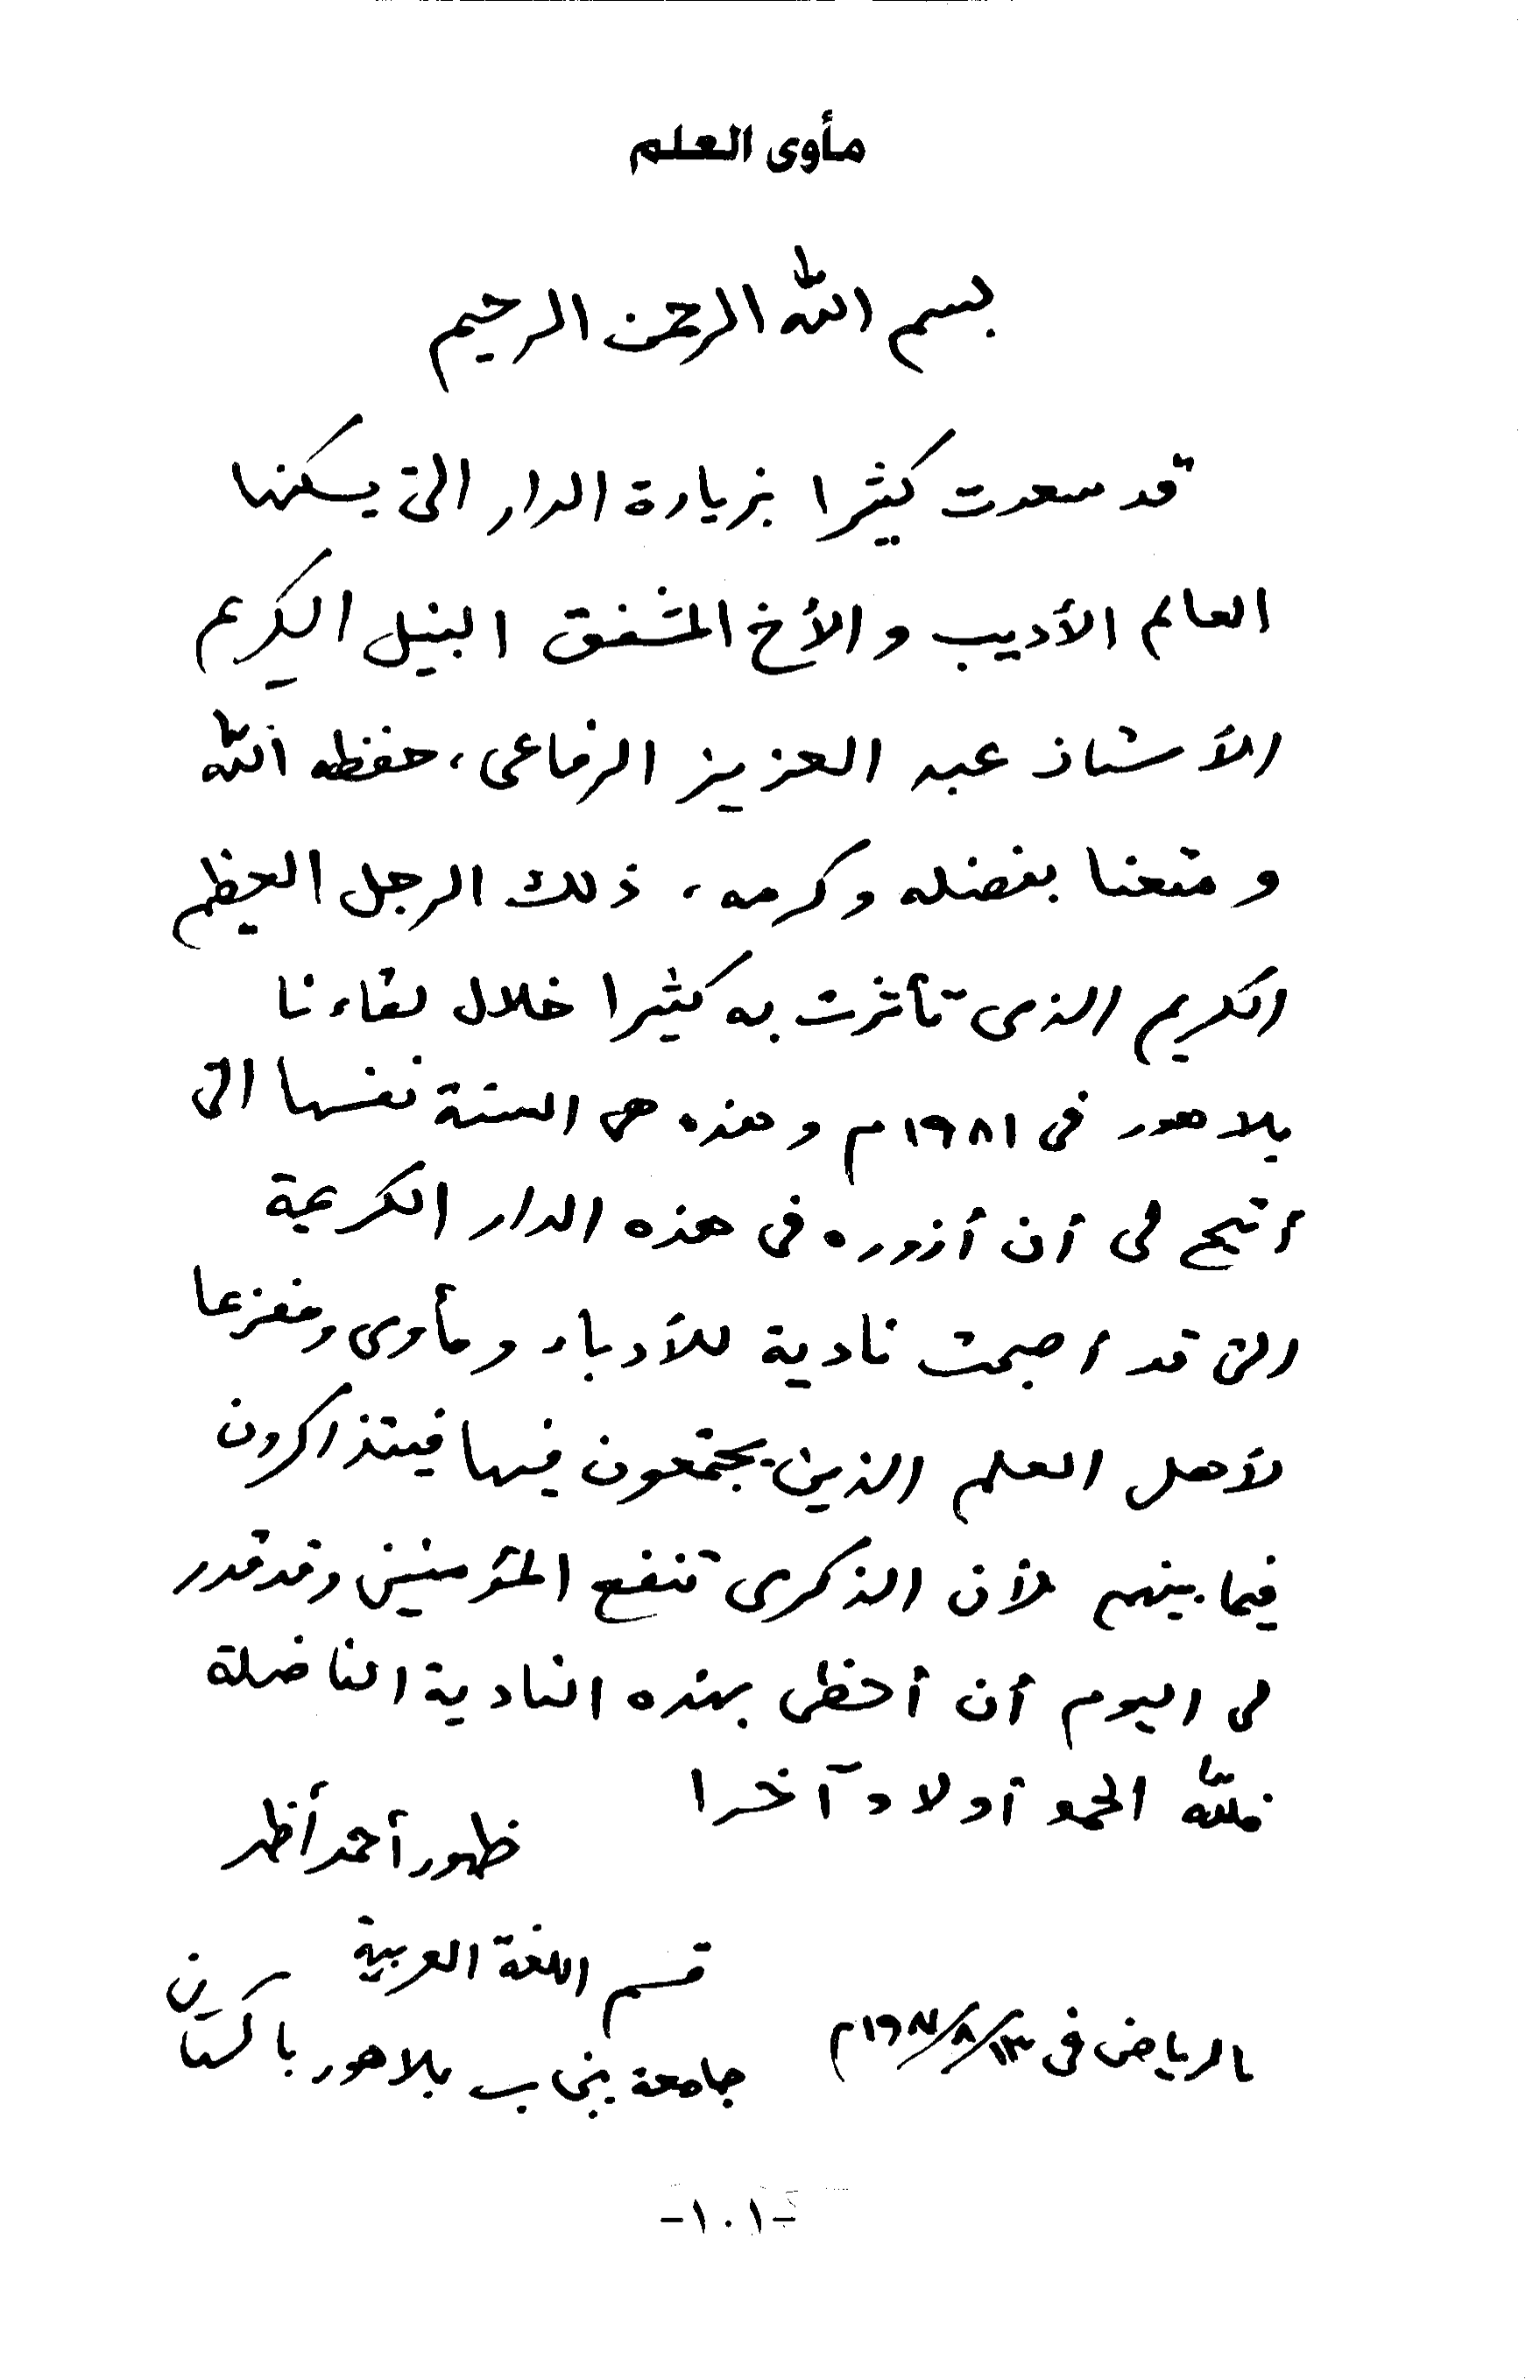 مأوى العلم
بسم الله الرحمن الرحيم
قد سعدت كثيرا بزيارة الدار التى يسكنها
العالم الأديب والأخ المشفق النبيل الكريم
الأستاذ عبد العزيز الرفاعى، حفظه الله
ومتعنا بفضله وكرمه، ذلك الرجل العظيم
الكريم الذى تأثرت به كثيرا خلال لقاءنا
بلاهور فى ١٩٨١م وهذه هى السنة نفسها التى
أتيح لى أن أزوره فى هذه الدار الكريمة
التى قد أصبحت نادية للأدباء ومأوى ومفزعا
لأهل العلم الذين يجتمعون فيها فيتذاكرون
فيما بينهم لأن الذكرى تنفع المؤمنين وقد قدر
لى اليوم أن أحظى بهذه النادية الفاضلة
فلله الحمد أولا وآخرا
ظهور أحمد أظهر
قسم اللغة العربية
جامعة بنجاب بلاهور باكستان
بالرياض فى ١٣/٨/١٩٨١م
-١٠١-